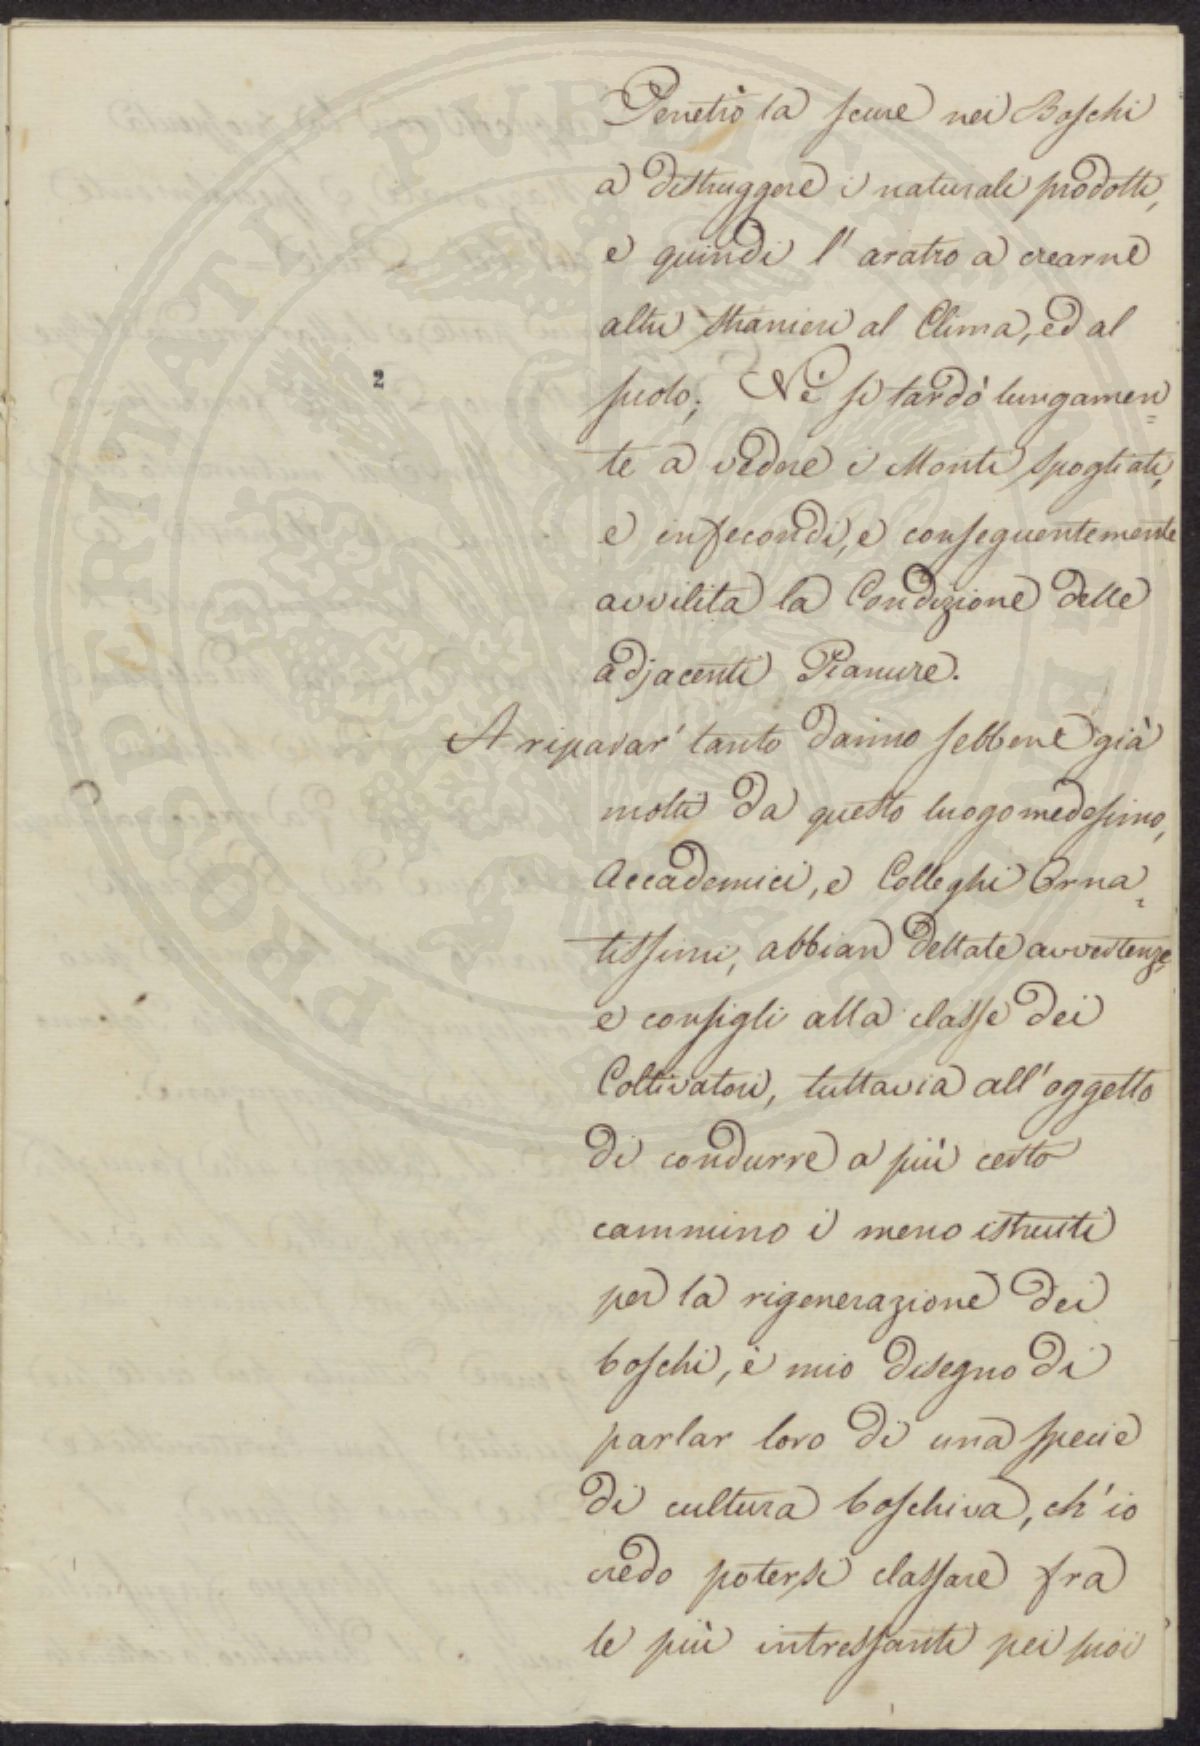 Penetrò la scure nei Boschi
a distruggere i naturali prodotti,
e quindi l'aratro a crearne
altri stranieri al Clima, ed al
suolo; Nè si tardò lungamen=
te a vedere i Monti spogliati,
e infecondi, e conseguentemente
avvilita la Condizione delle
adjacenti Pianure.
A riparar' tanto danno sebbene già
molti da questo luogo medesimo,
Accademici, e Colleghi Orna=
tissimi, abbian dettate avvertenze,
e consigli alla classe dei
Coltivatori, tuttavia all'oggetto
di condurre a più certo
cammino i meno istruiti
per la rigenerazione dei
boschi, è mio disegno di
parlar loro di una specie
di cultura boschiva, ch'io
credo potersi classare fra
le più intressanti pei suoi
2
PROSPERITATI PUBLICAE